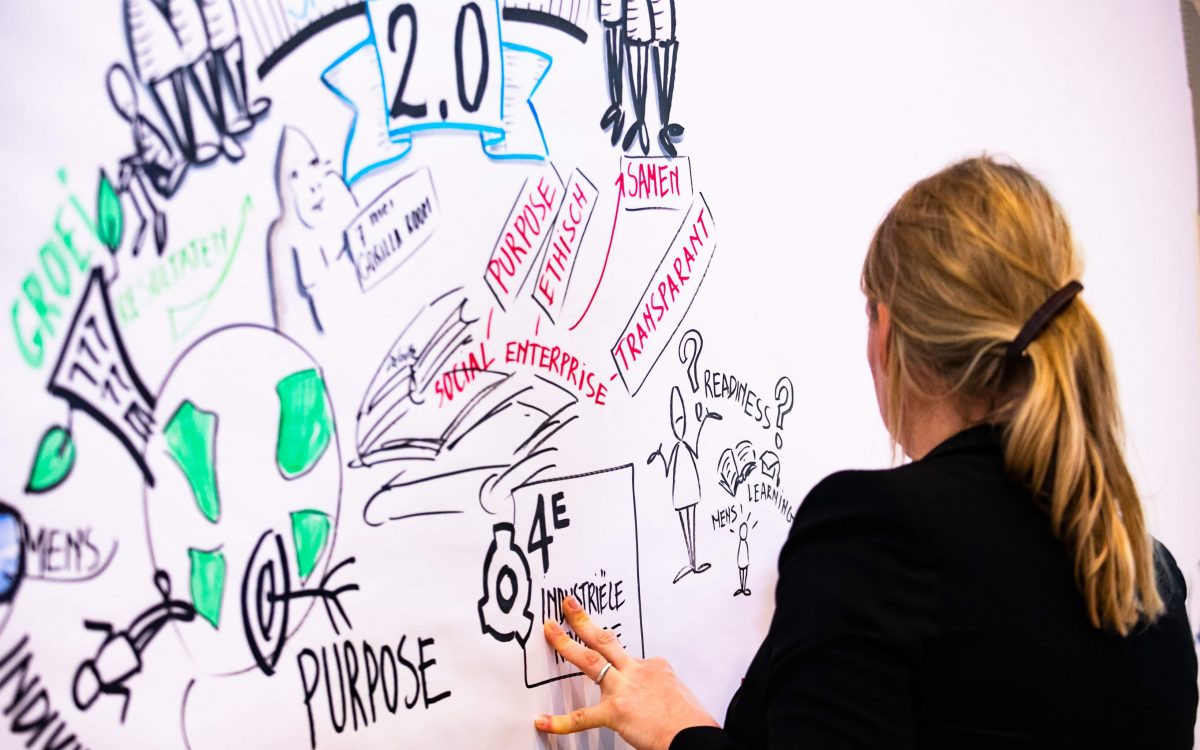 2.0
GROEI
RESULTATEN
GORILLA ROOM
PURPOSE
ETHISCH
SAMEN
TRANSPARANT
SOCIAL ENTERPRISE
? READINESS ?
LEARNING
MENS!
MENS
4E
INDUSTRIËLE
PURPOSE